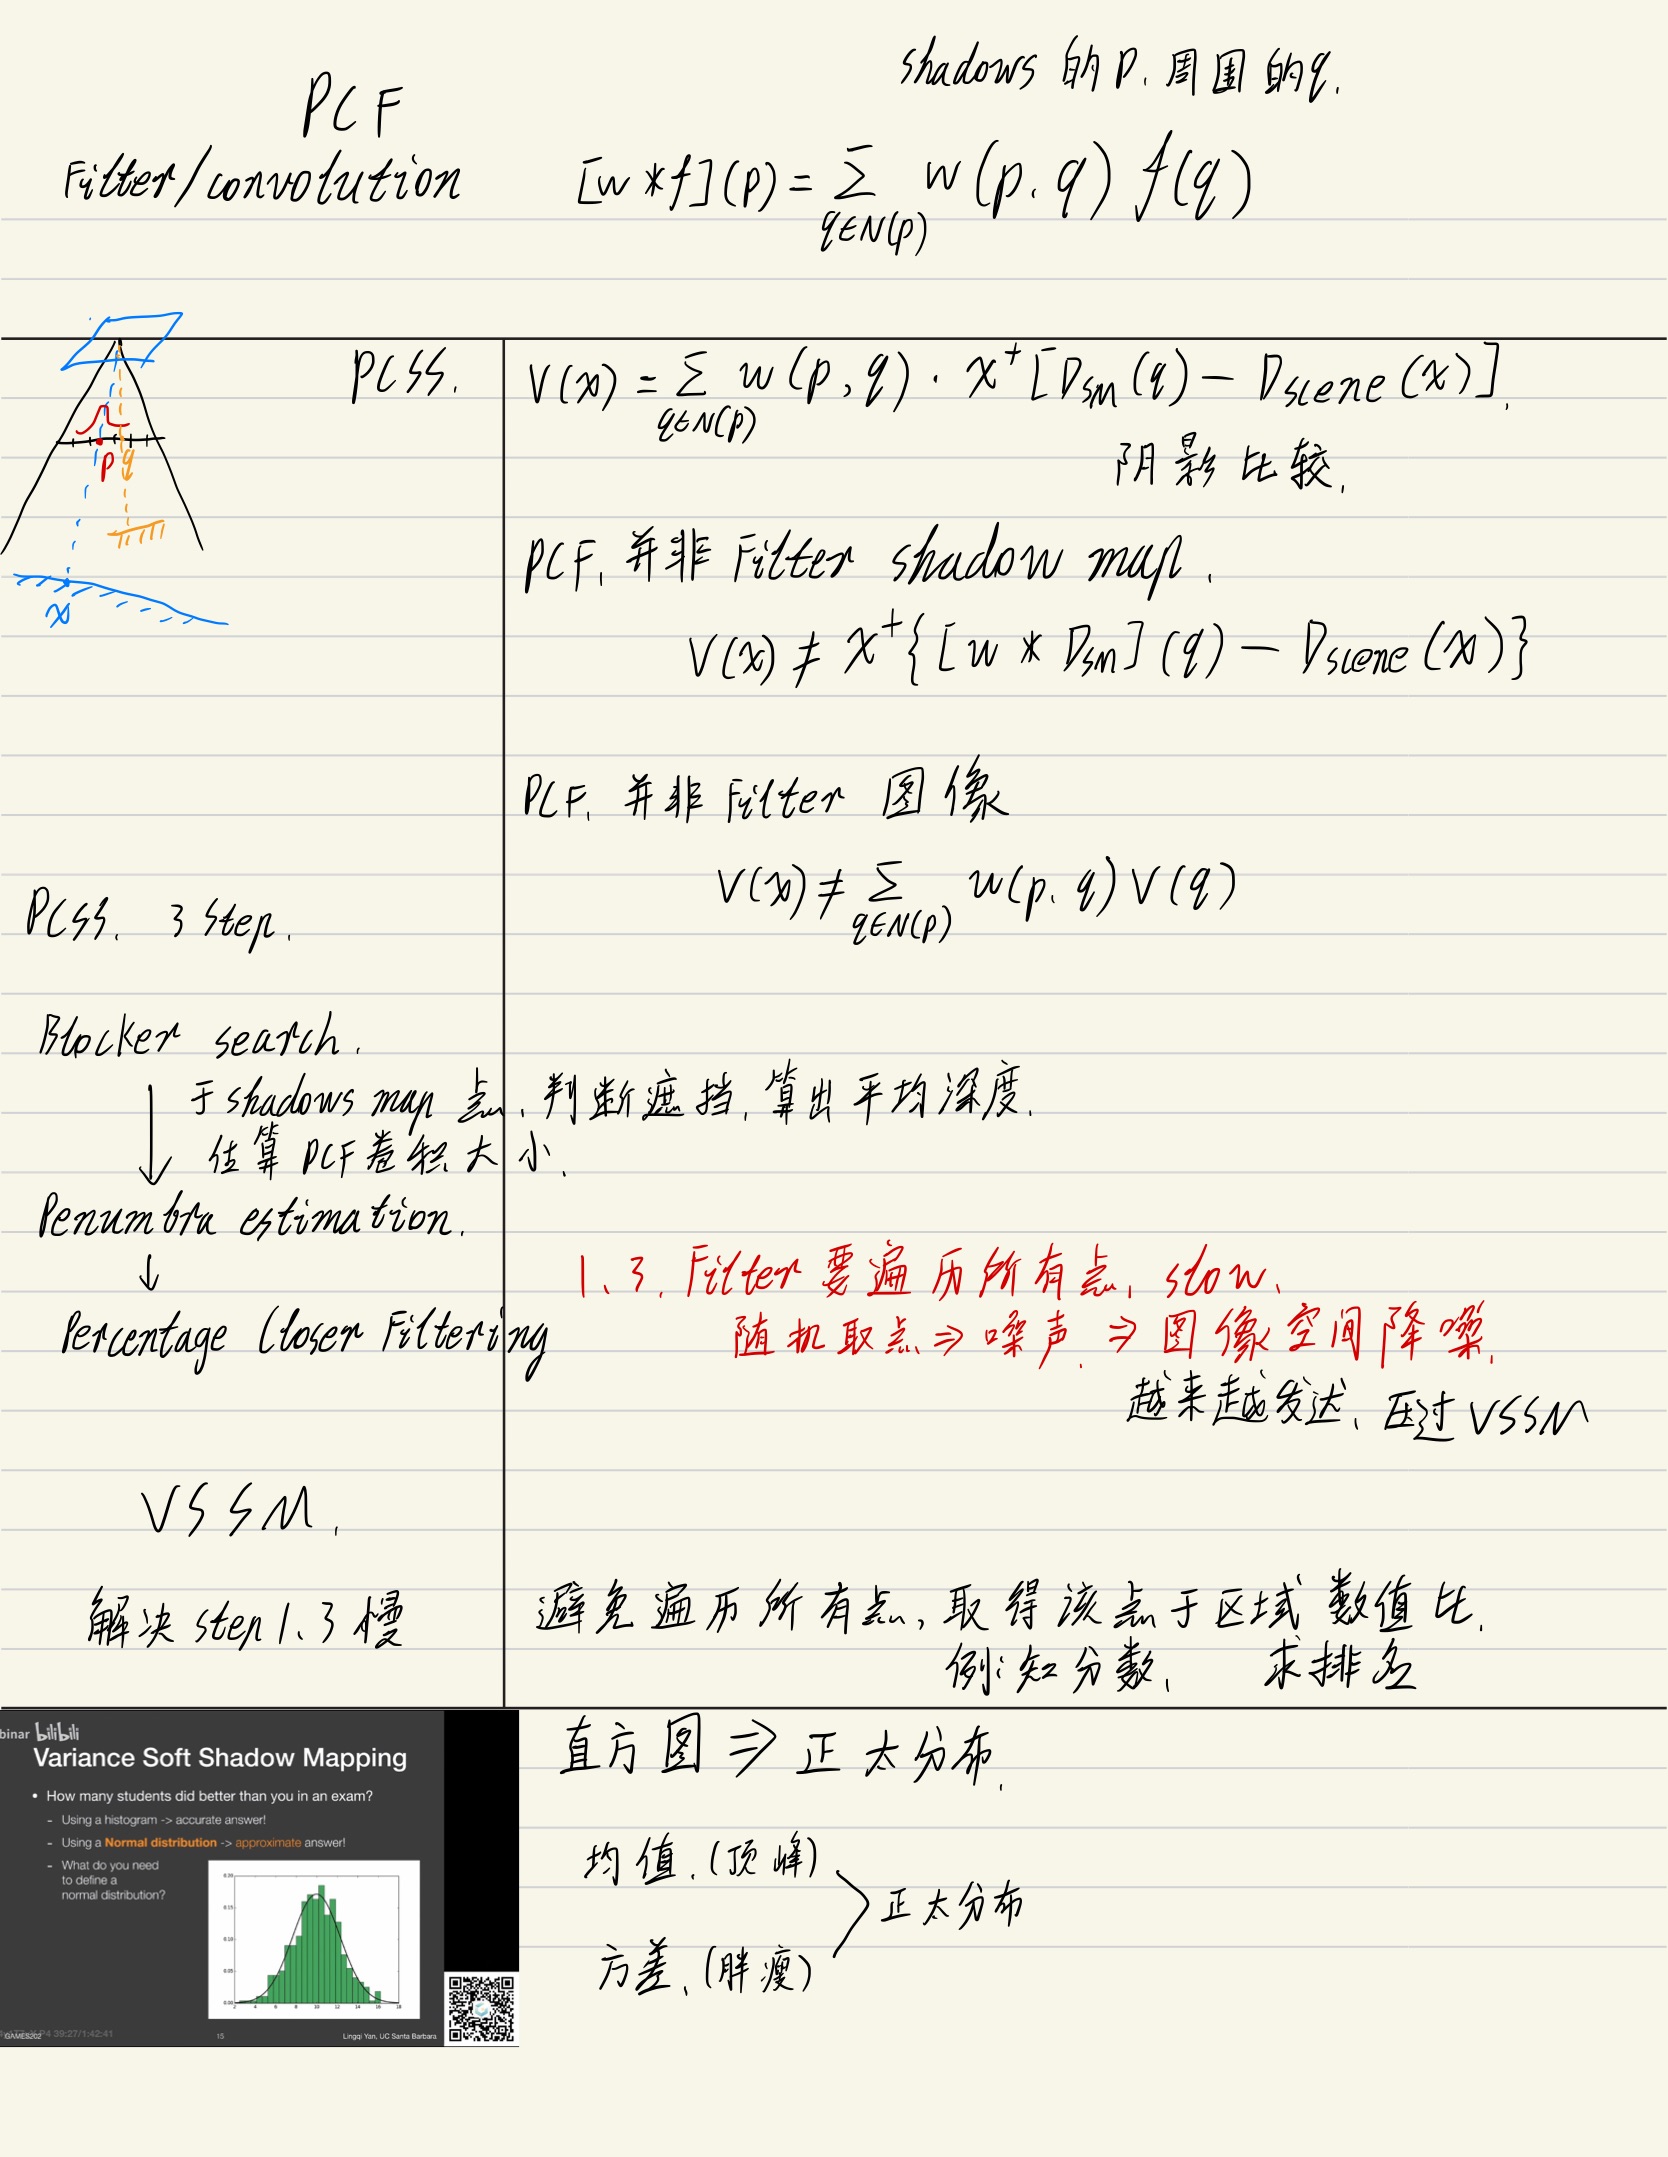 shadows 的 p. 周围的 q.
PCF
Filter/convolution
[w*f](p) = Σ w(p,q) f(q)
q∈N(p)
PCSS.
V(x) = Σ w(p,q) · χ⁺[D_SM(q) − D_scene(x)].
q∈N(p)
阴影比较.
p q
x
PCF, 并非 Filter shadow map.
V(x) ≠ χ⁺{[w * D_SM](q) − D_scene(x)}
PCF, 并非 Filter 图像
V(x) ≠ Σ w(p,q) V(q)
q∈N(p)
PCSS. 3 Step.
Blocker search.
于 shadows map 点, 判断遮挡, 算出平均深度.
估算 PCF 卷积大小.
Penumbra estimation.
1、3. Filter 要遍历所有点, slow.
Percentage Closer Filtering
随机取点 ⇒ 噪声. ⇒ 图像空间降噪.
越来越发达, 压过 VSSM
VSSM.
解决 step 1、3 慢
避免遍历所有点, 取得该点于区域数值比.
例: 知分数, 求排名
binar bilibili
Variance Soft Shadow Mapping
• How many students did better than you in an exam?
- Using a histogram -> accurate answer!
- Using a Normal distribution -> approximate answer!
- What do you need
to define a
normal distribution?
0.20
0.15
0.10
0.05
0.00
2 4 6 8 10 12 14 16 18
GAMES202
P4 39:27/1:42:41
15
Lingqi Yan, UC Santa Barbara
直方图 ⇒ 正太分布.
均值. (顶峰)
正太分布
方差. (胖瘦)